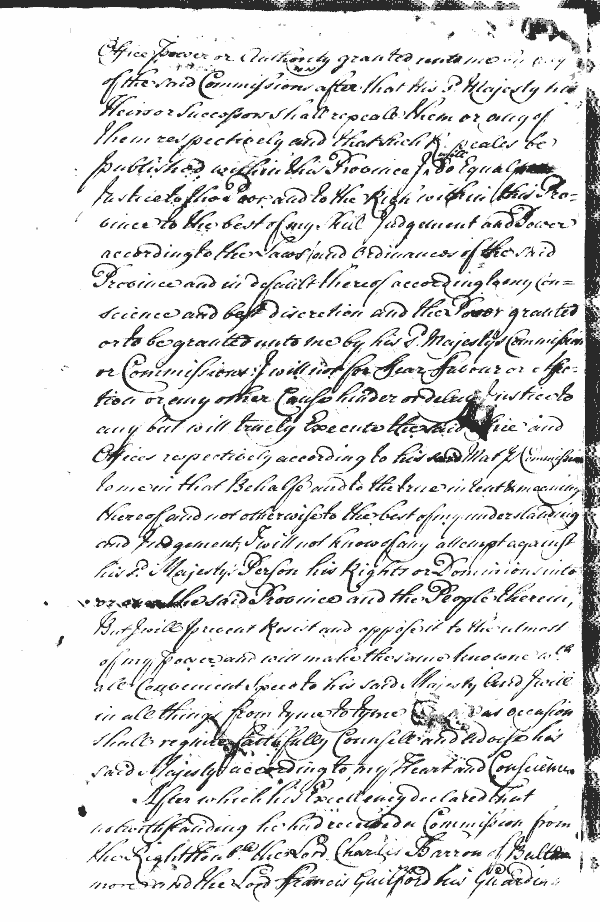 Office Power or Authority granted unto me by any
of the said Commissions after that his Sd. Majesty his
Heirs or Successors shall repeale them or any of
them respectively and that such Repeales be
published within this Province I will Do Equal
Justice to the Poor and to the Rich within this Pro=
vince to the best of my Skill Judgement and Power
according to the Laws and Ordinances of the said
Province and in default thereof according to my Con=
science and best discretion and the Power granted
or to be granted unto me by his Sd. Majestys Commission
or Commissions I will not for Fear Favour or affec=
tion or any other Cause hinder or delay Justice to
any but will truely Execute the said Office and
Offices respectively according to his said Matys Commission
to me in that Behalfe and to the true intent & meaning
thereof and not otherwise to the best of my understanding
and Judgement, I will not know of any attempt against
his Sd. Majestys Person his Rights or Dominions into
or over the said Province and the People therein,
But I will prevent Resist and oppose it to the utmost
of my power and will make the same knowne wth.
all Convenient Speed to his said Majesty And I will
in all things from tyme to tyme as occasion
shall require Faithfully Counsell and advise his
said Majesty according to my Heart and Conscience.
After which his Excellency declared that
notwithstanding he had received a Commission from
the Right Honble. the Lord Charles Barron of Baltim
more and the Lord Francis Guilford his Guardian